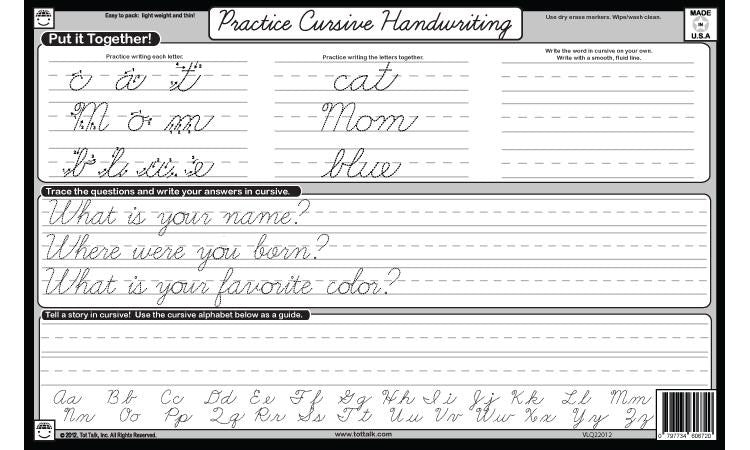 Easy to pack: light weight and thin!
Practice Cursive Handwriting
Use dry erase markers. Wipe/wash clean.
MADE
IN
U.S.A
Put it Together!
Practice writing each letter.
Practice writing the letters together.
Write the word in cursive on your own.
Write with a smooth, fluid line.
c a t cat
M o m Mom
b l u e blue
Trace the questions and write your answers in cursive.
What is your name?
Where were you born?
What is your favorite color?
Tell a story in cursive! Use the cursive alphabet below as a guide.
Aa Bb Cc Dd Ee Ff Gg Hh Ii Jj Kk Ll Mm
Nn Oo Pp Qq Rr Ss Tt Uu Vv Ww Xx Yy Zz
© 2012, Tot Talk, Inc. All Rights Reserved.
www.tottalk.com
VLQ22012
0 797734 606720